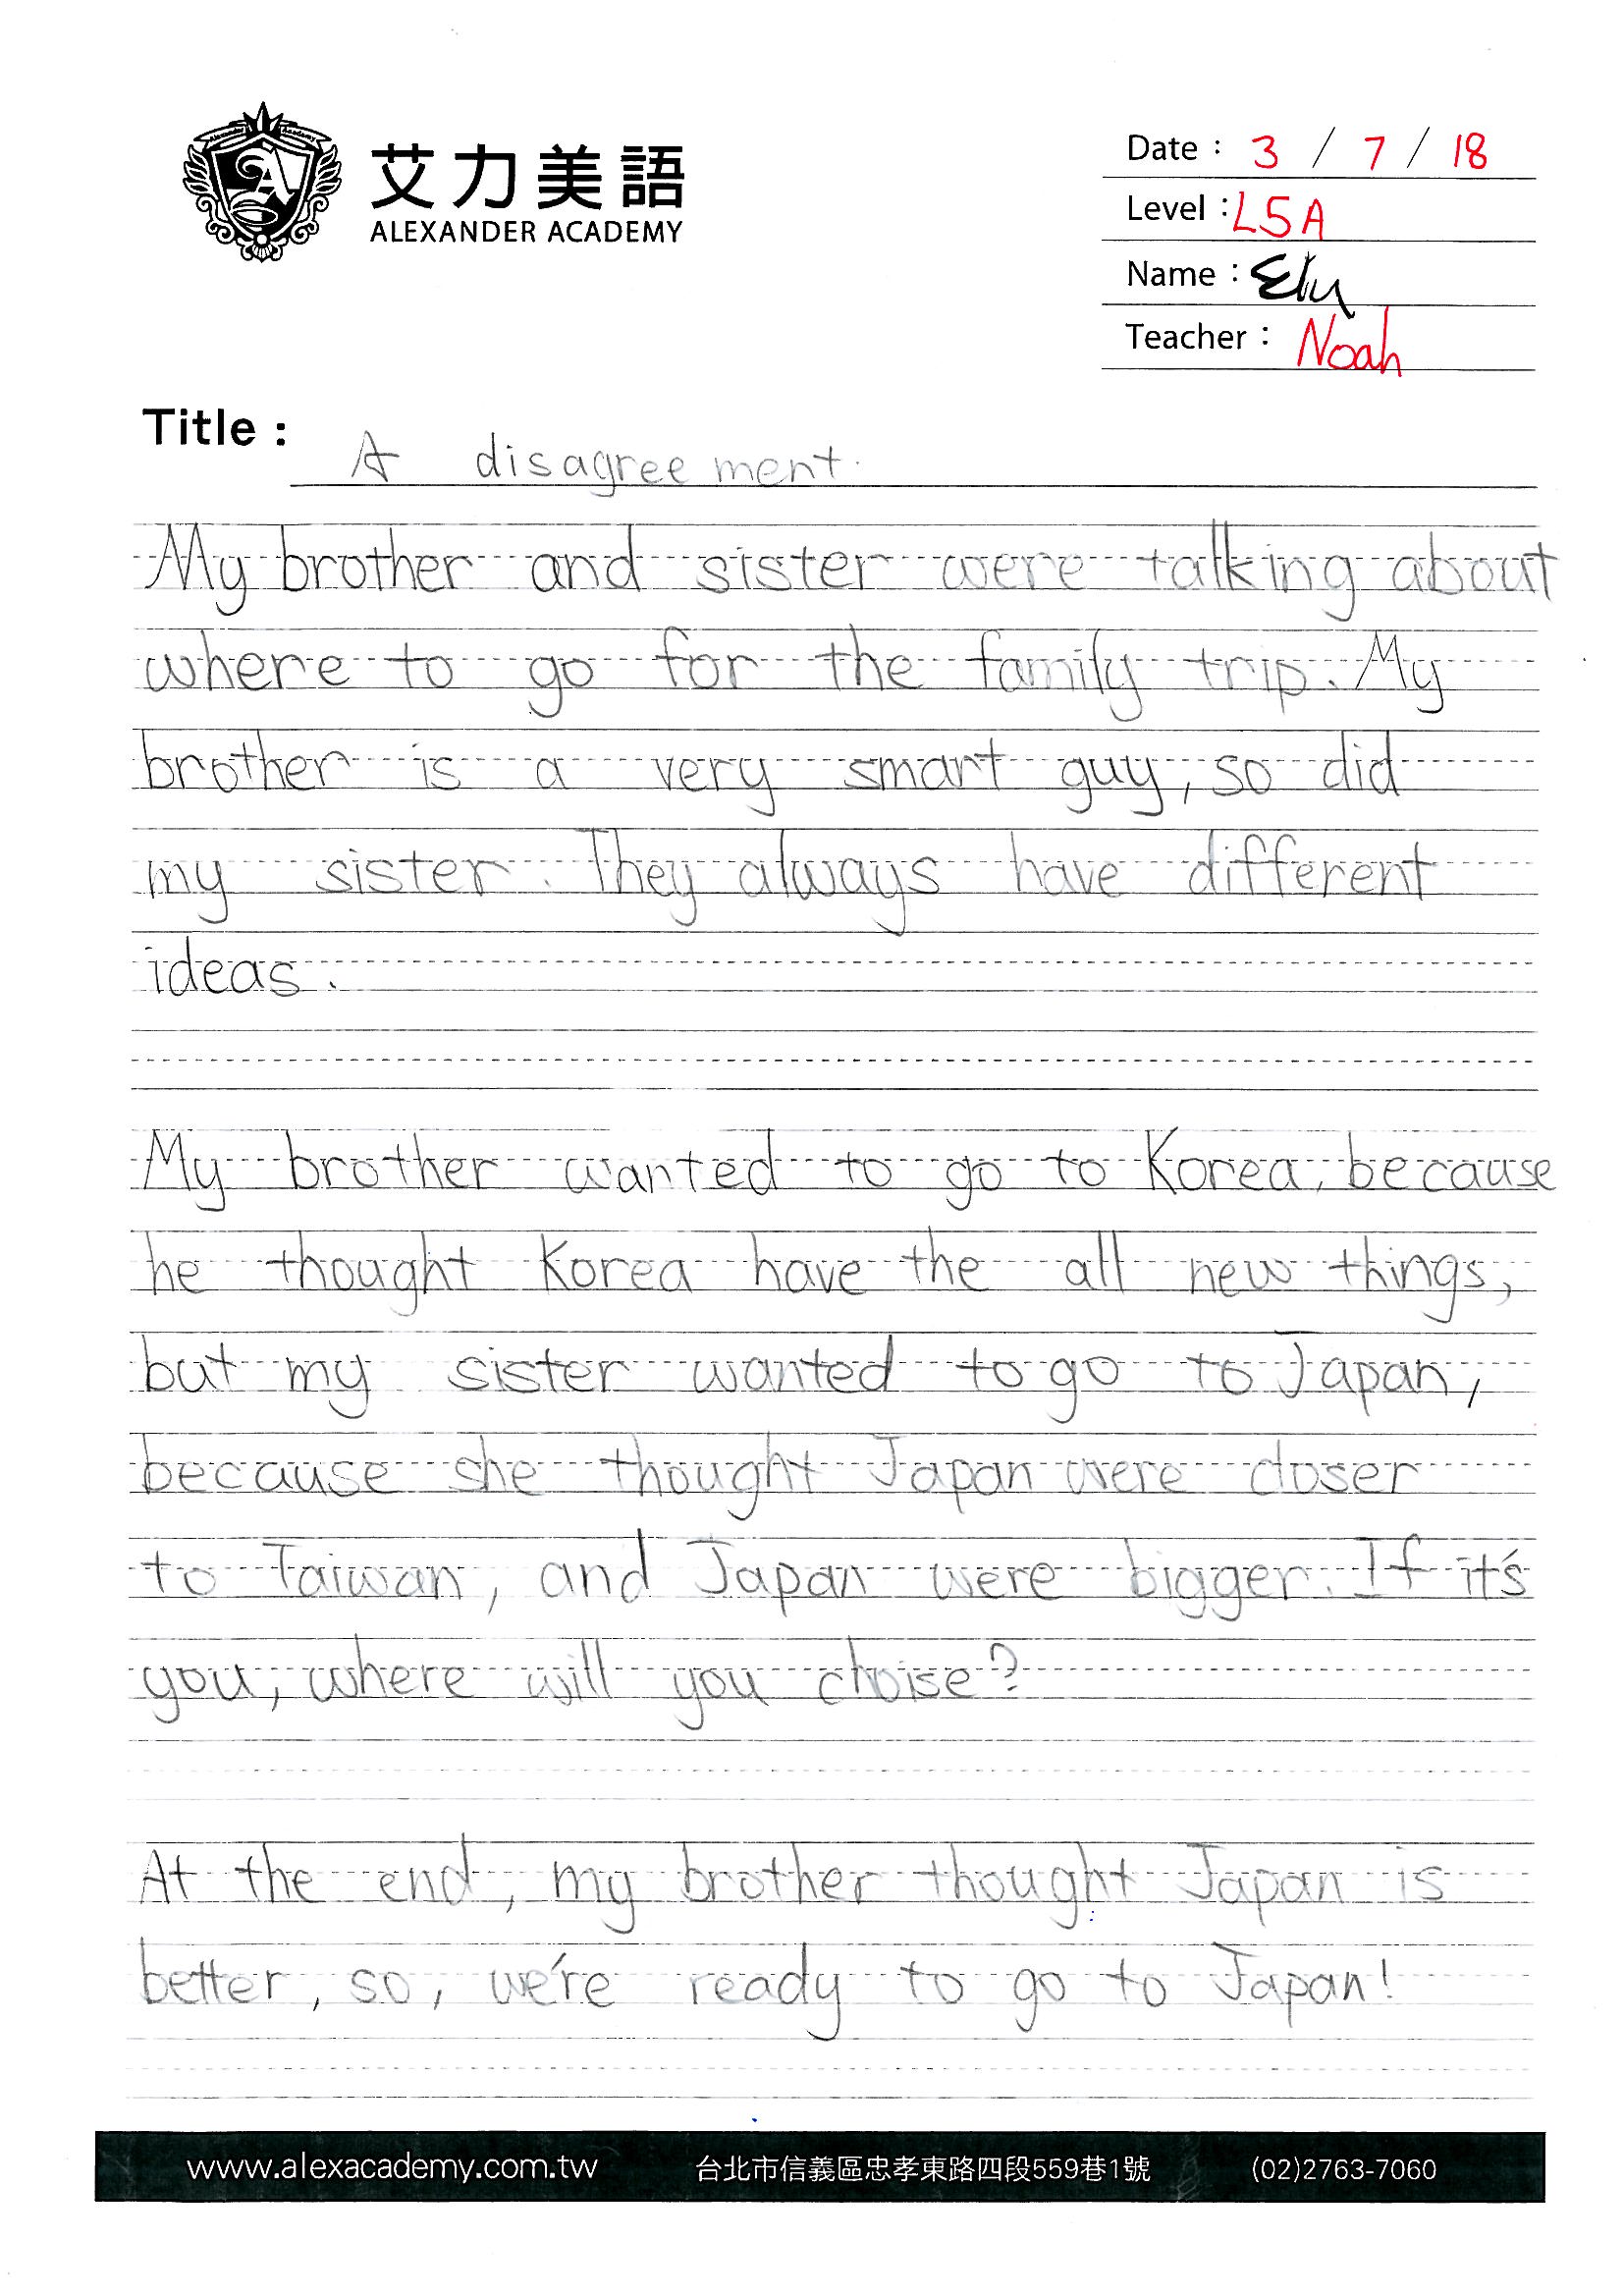 艾力美語
ALEXANDER ACADEMY
Date : 3 / 7 / 18
Level : L5A
Name :
Teacher : Noah
Title : A disagreement.
My brother and sister were talking about
where to go for the family trip. My
brother is a very smart guy, so did
my sister. They always have different
ideas.
My brother wanted to go to Korea, because
he thought Korea have the all new things,
but my sister wanted to go to Japan,
because she thought Japan were closer
to Taiwan, and Japan were bigger. If it's
you, where will you choise?
At the end, my brother thought Japan is
better, so, we're ready to go to Japan!
www.alexacademy.com.tw 台北市信義區忠孝東路四段559巷1號 (02)2763-7060